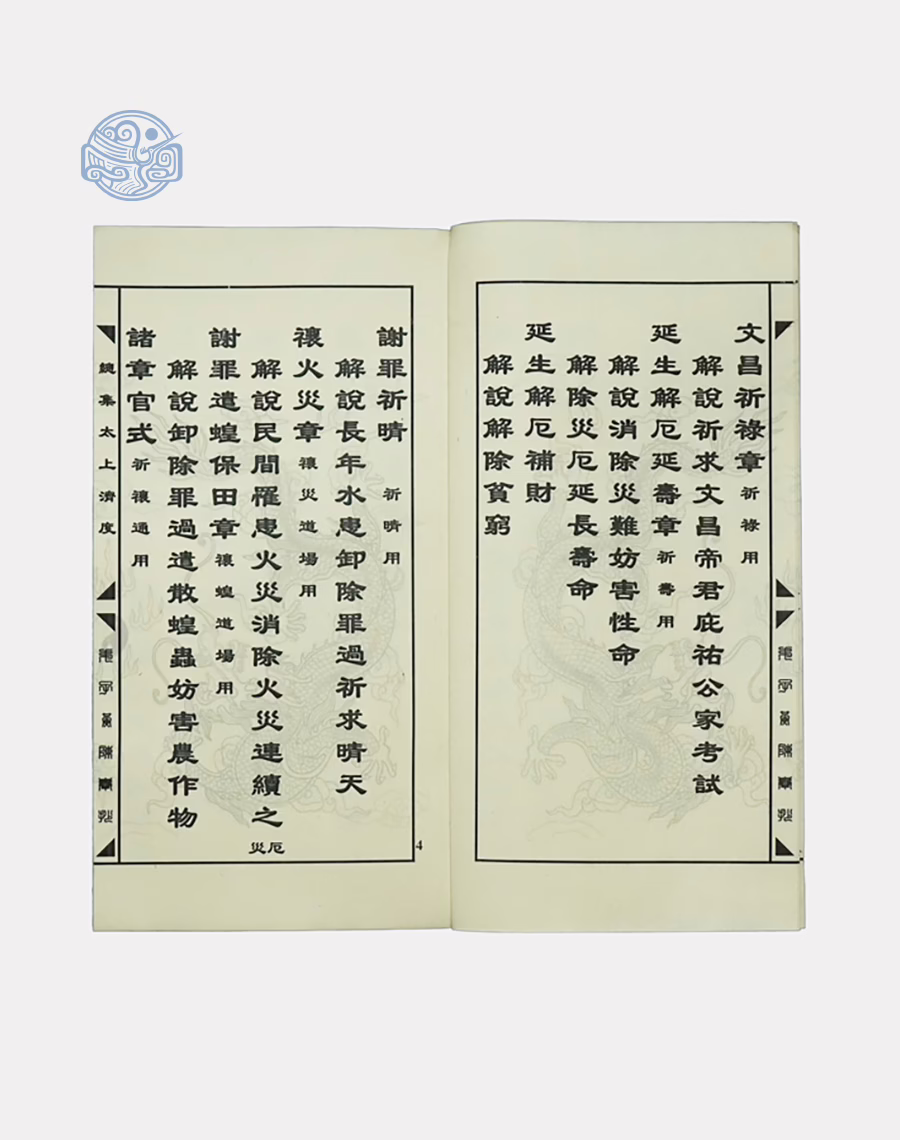 文昌祈祿章 祈祿用
解說祈求文昌帝君庇祐公家考試
延生解厄延壽章 祈壽用
解說消除災難妨害性命
解除災厄延長壽命
延生解厄補財
解說解除貧窮
4
謝罪祈晴 祈晴用
解說長年水患卸除罪過祈求晴天
禳火災章 禳災道場用
解說民間罹患火災消除火災連續之厄災
謝罪遣蝗保田章 禳蝗道場用
解說卸除罪過遣散蝗蟲妨害農作物
諸章官式 祈禳通用
總集太上濟度